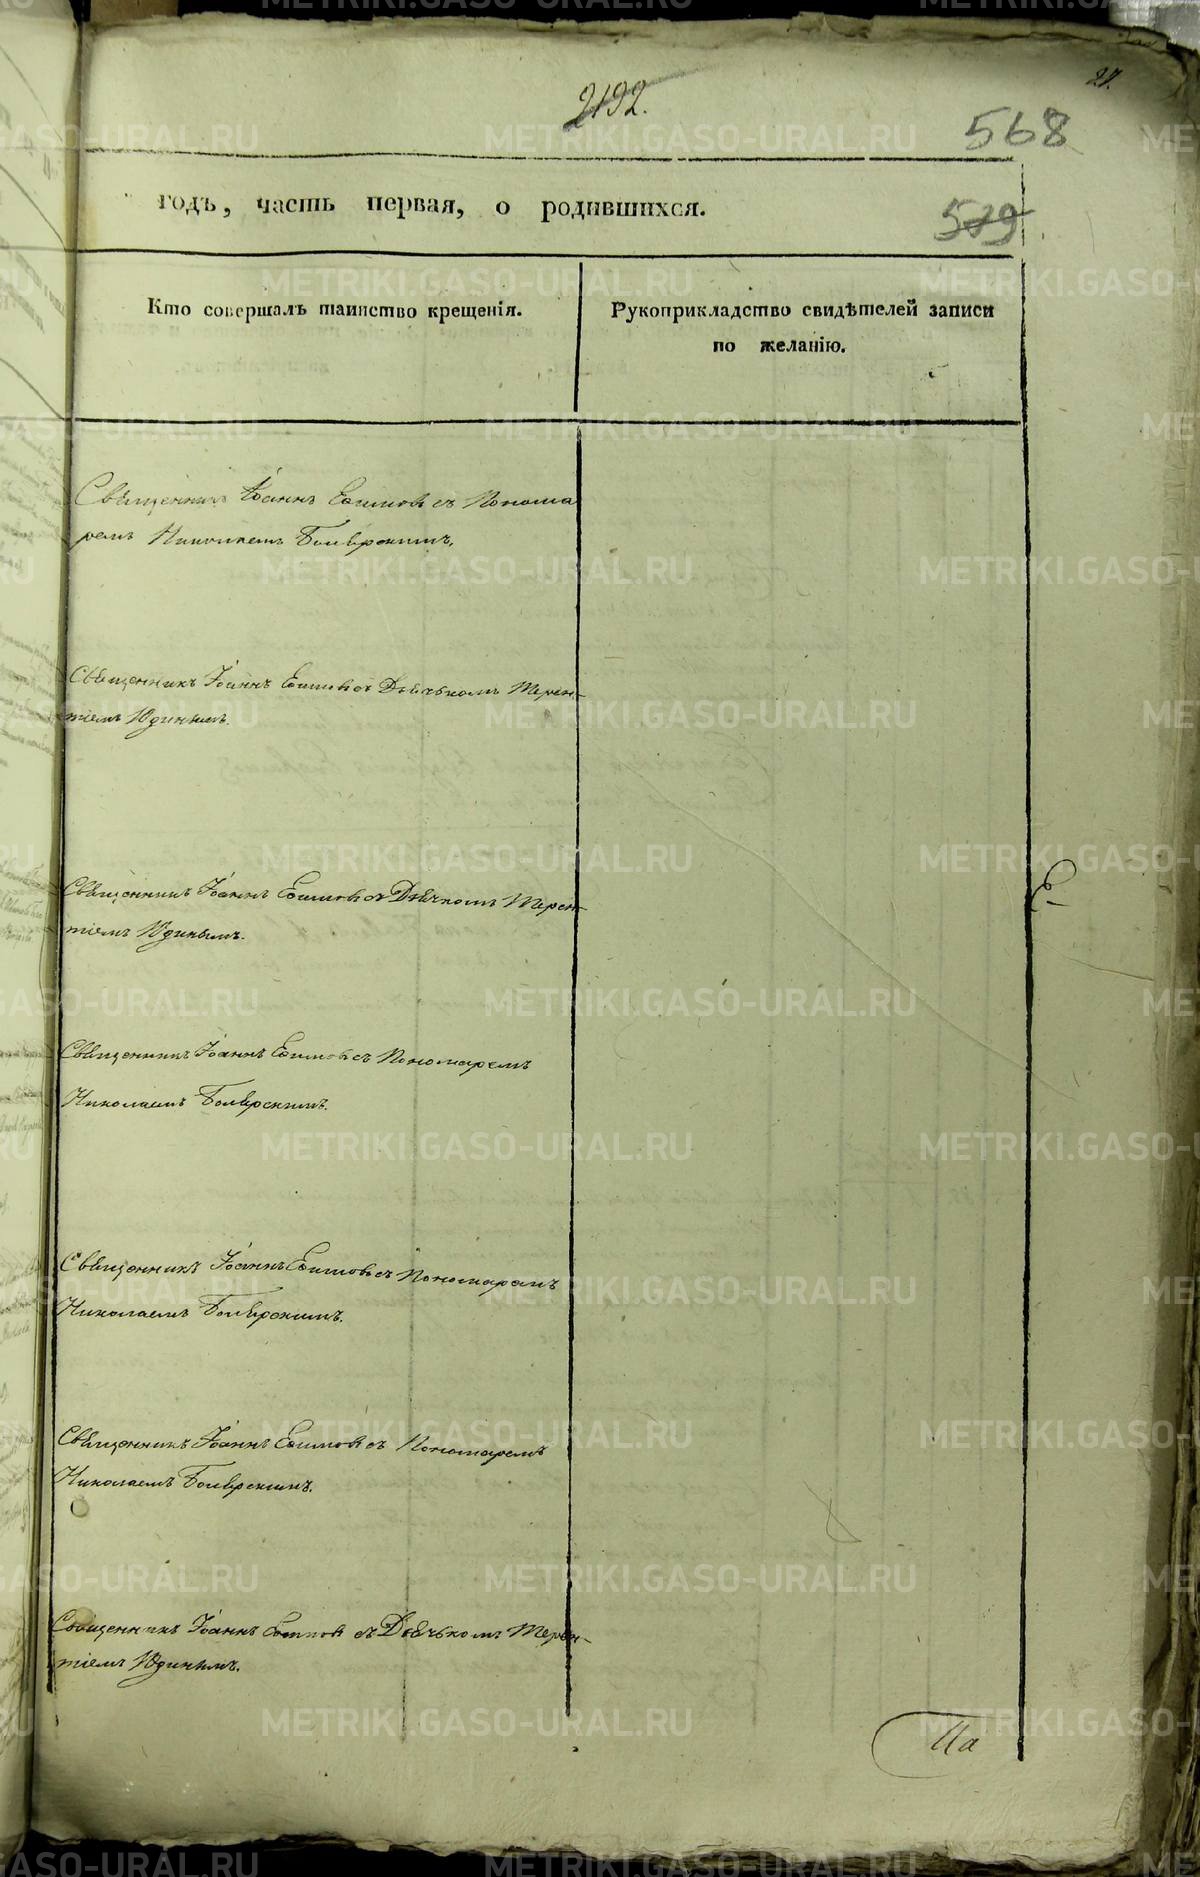 27.
2192.
568
519
годъ, часть первая, о родившихся.
Кто совершалъ таинство крещенія.
Рукоприкладство свидѣтелей записи
по желанію.
Священникъ Іоаннъ Ефимовъ съ Понома
ремъ Николаемъ
Священникъ Іоаннъ Ефимовъ съ Дьячькомъ Терен-
тіемъ Юдинымъ.
Священникъ Іоаннъ Ефимовъ съ Дьячкомъ Терен-
тіемъ Юдинымъ.
Священникъ Іоаннъ Ефимовъ съ Пономаремъ
Николаемъ
Священникъ Іоаннъ Ефимовъ съ Пономаремъ
Николаемъ
Священникъ Іоаннъ Ефимовъ съ Пономаремъ
Николаемъ
Священникъ Іоаннъ Ефимовъ съ Дьячькомъ Терен-
тіемъ Юдинымъ.
METRIKI.GASO-URAL.RU